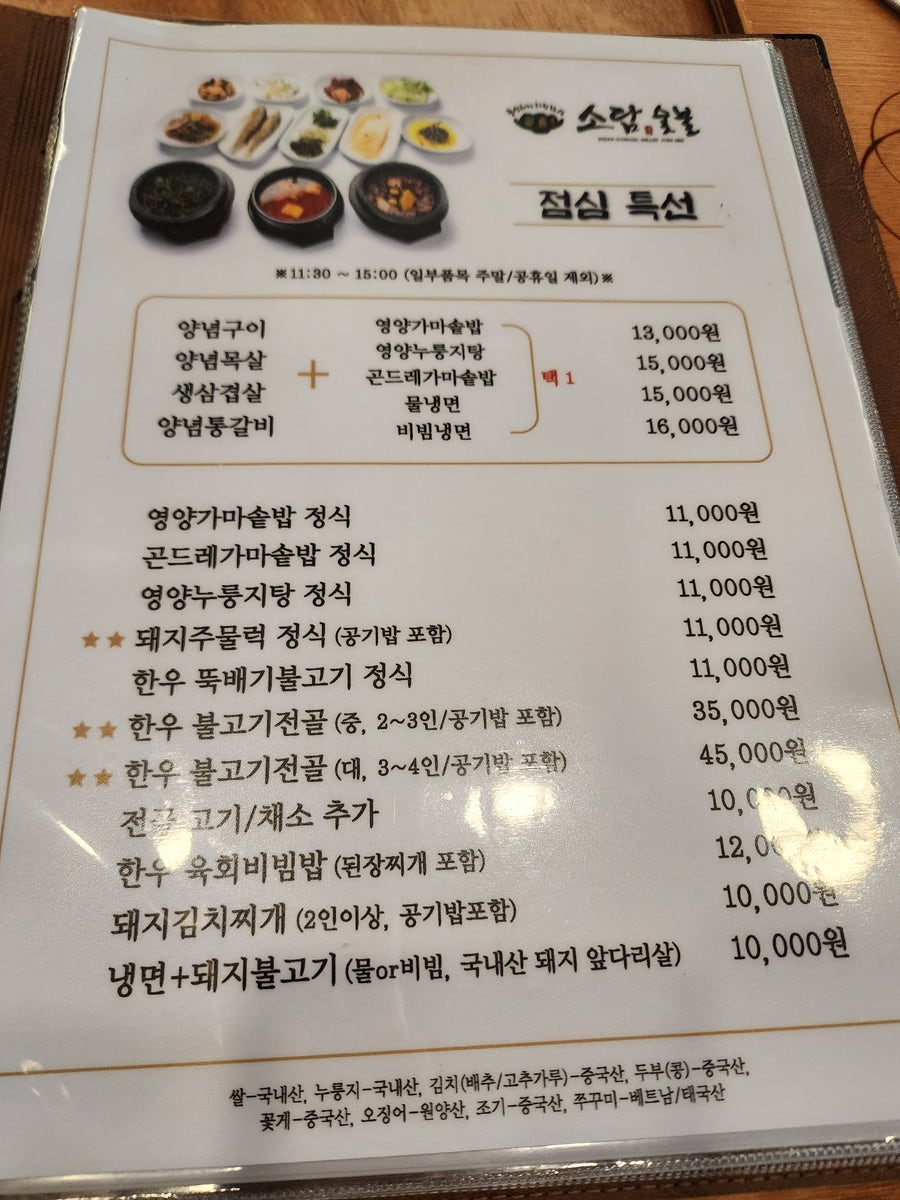 소담 숯불
점심 특선
※11:30 ~ 15:00 (일부품목 주말/공휴일 제외)※
양념구이 영양가마솥밥 13,000원
양념목살 영양누룽지탕 15,000원
+ 곤드레가마솥밥 택 1
생삼겹살 물냉면 15,000원
양념통갈비 비빔냉면 16,000원
영양가마솥밥 정식 11,000원
곤드레가마솥밥 정식 11,000원
영양누룽지탕 정식 11,000원
★★ 돼지주물럭 정식 (공기밥 포함) 11,000원
한우 뚝배기불고기 정식 11,000원
★★ 한우 불고기전골 (중, 2~3인/공기밥 포함) 35,000원
★★ 한우 불고기전골 (대, 3~4인/공기밥 포함) 45,000원
전골 고기/채소 추가
한우 육회비빔밥 (된장찌개 포함)
돼지김치찌개 (2인이상, 공기밥포함) 10,000원
냉면+돼지불고기 (물or비빔, 국내산 돼지 앞다리살) 10,000원
쌀-국내산, 누룽지-국내산, 김치(배추/고추가루)-중국산, 두부(콩)-중국산,
꽃게-중국산, 오징어-원양산, 조기-중국산, 쭈꾸미-베트남/태국산